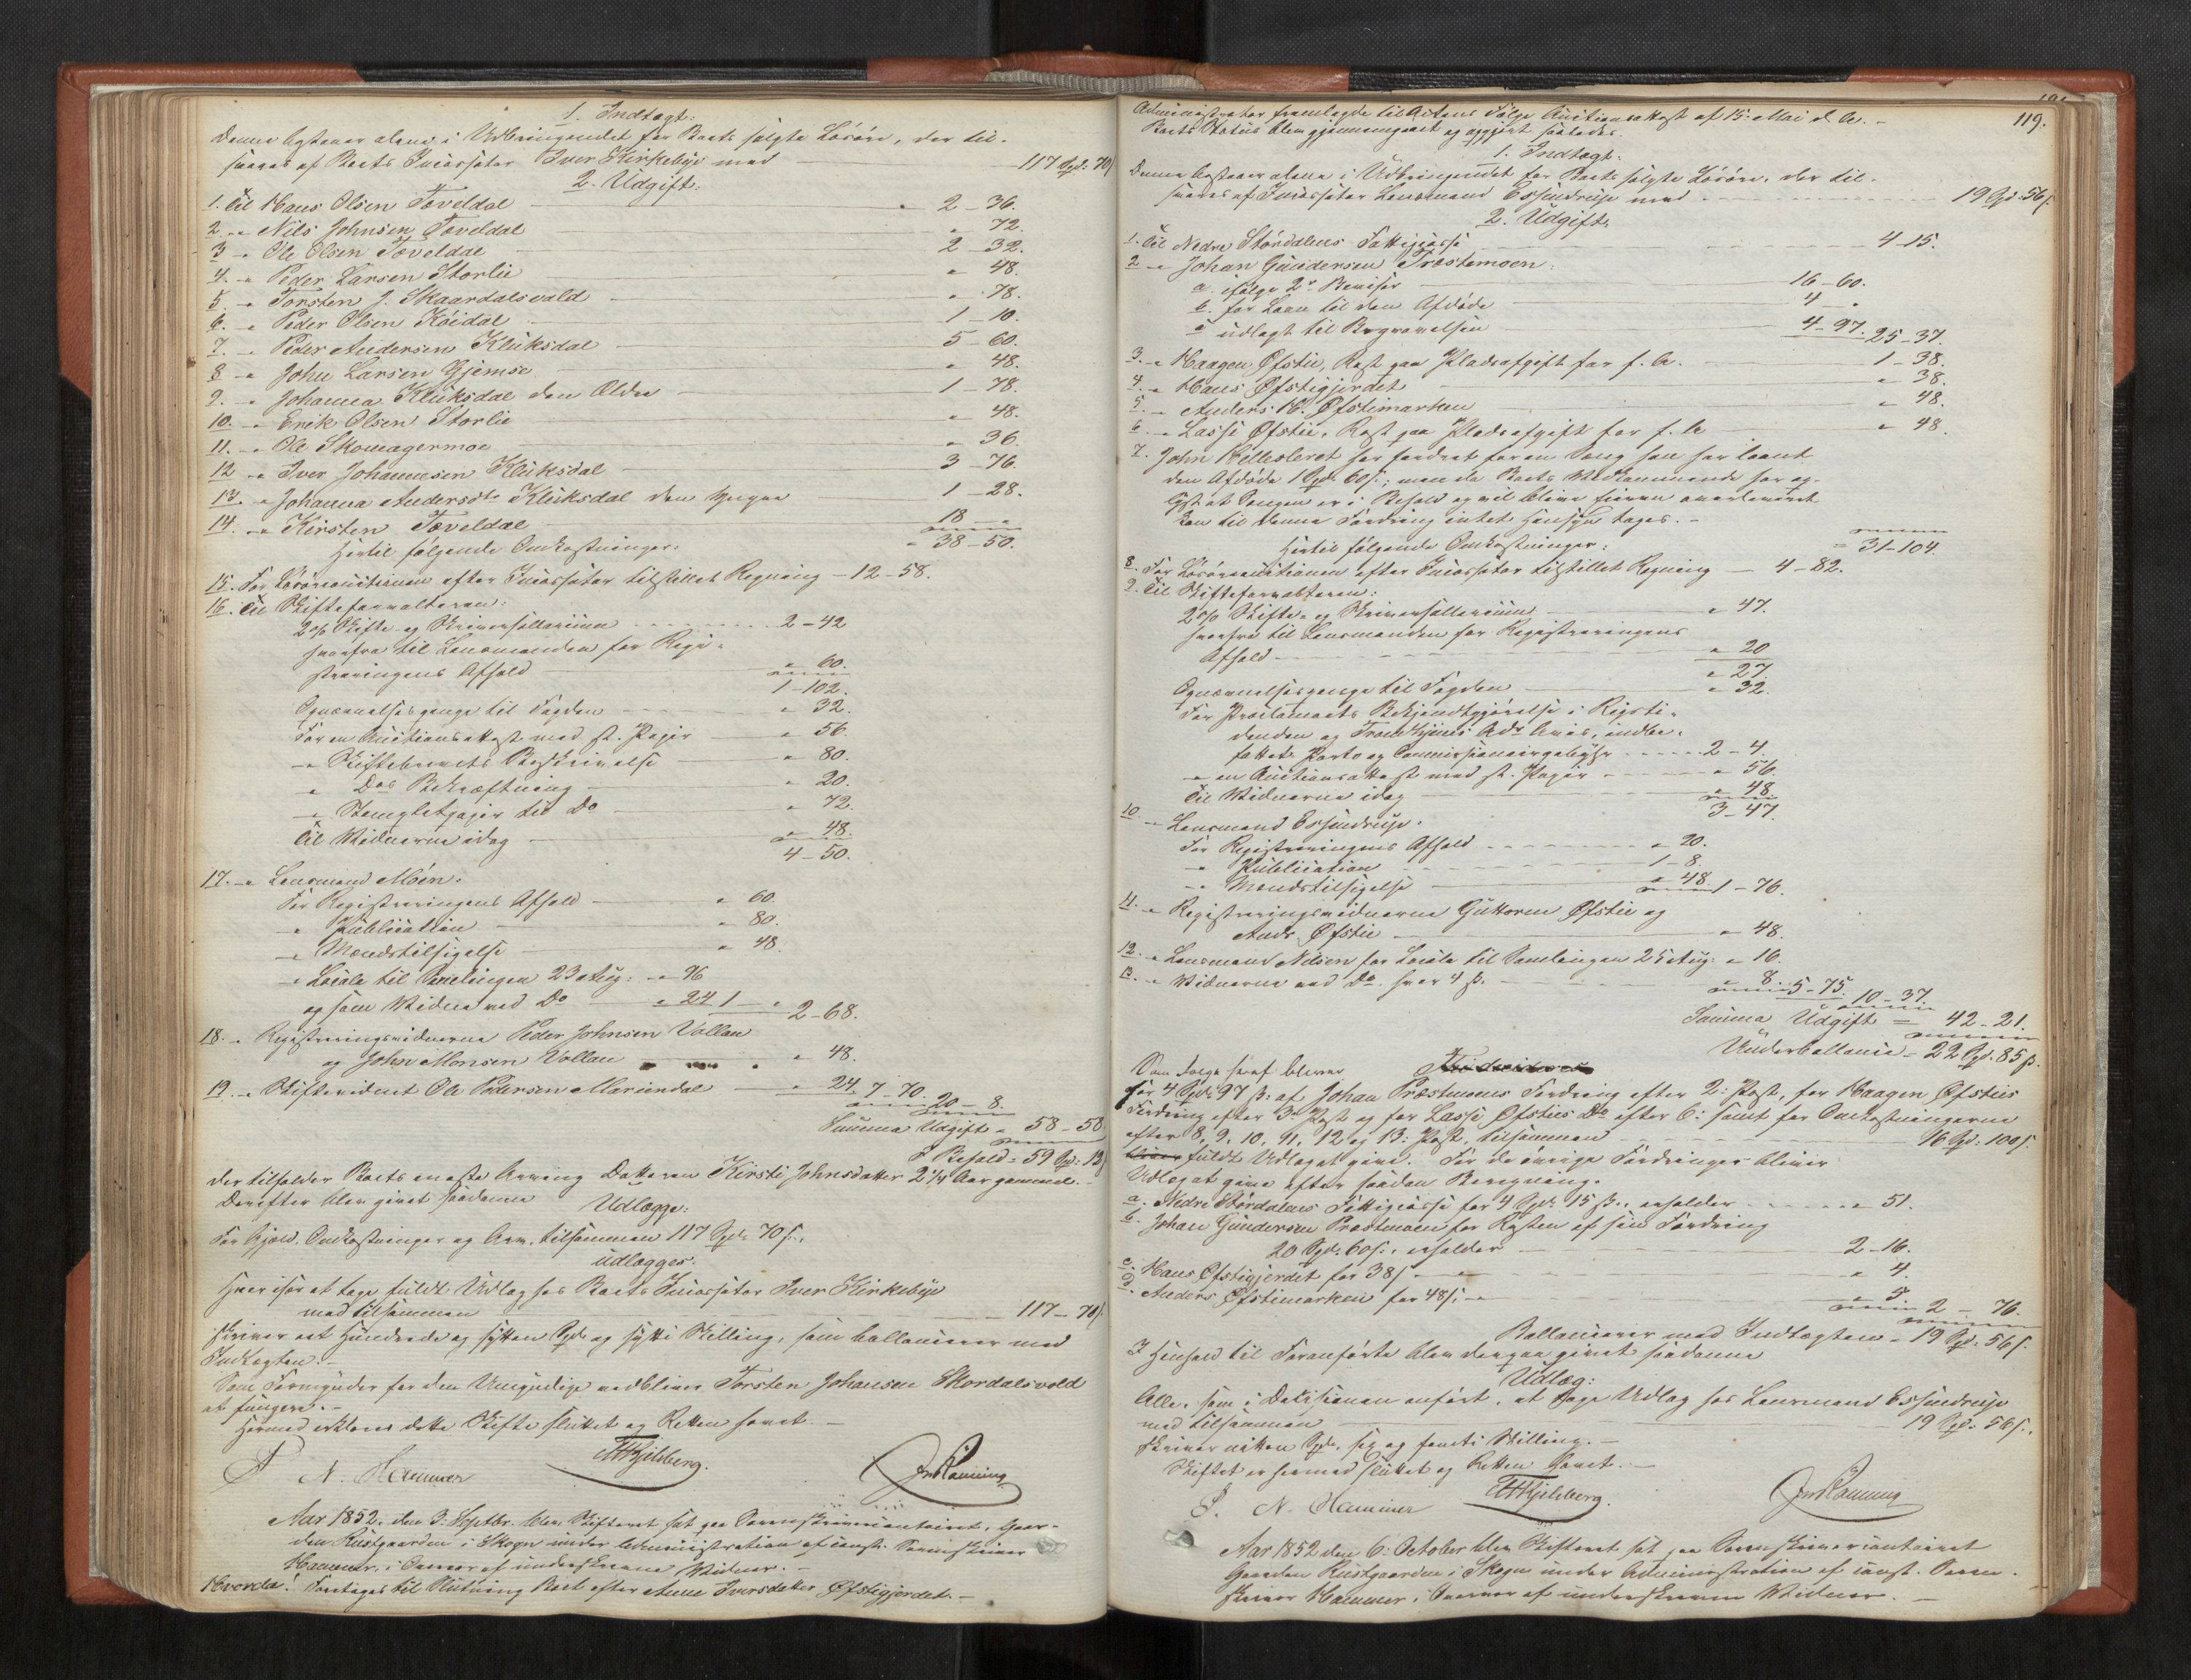 1. Indtægt:
Denne bestaaer alene i Udbringendet for Boets solgte Løsøre, der til-
svares af Boets Incassator Iver Kirkebye med 117 Spd. 70ß
2. Udgift:
1. Til Hans Olsen Tæveldal " 2-36.
2. " Nils Johnsen Tæveldal " 72.
3. " Ole Olsen Tæveldal 2-32.
4. " Peder Larsen Storlie " 48.
5. " Torsten J. Skaardalsvald " 78.
6. " Peder Olsen Kóidal 1-10.
7. " Peder Andersen Klüksdal 5-60.
8. " John Larsen Gjemse " 48.
9. " Johanna Klüksdal den Ældre 1-78.
10. " Erik Olsen Storlie " 48.
11. " Ole Skomagermoe " 36.
12. " Iver Johannesen Klüksdal 3-76.
13. " Johanna Andersdtr Klüksdal den Yngre 1-28.
14. " Kirsten Tæveldal 18 - "
Hertil følgende Omkostninger: " 38-50.
15. For Løsøreauctionen efter Incassator tilstillet Regning - 12-58.
16. Til Skifteforvalteren:
2 o/o Skifte og Skriversallarium 2-42
hvorfra til Lensmanden for Regi-
streringens Afhold " 60.
1-102.
Opnævnelsespenge til Fogden " 32.
For en Auctionsattest med st. Papir " 56.
" Skiftebrevets Beskrivelse " 80.
" Dos Bekræftning " 20.
" Stempletpapir til Do " 72.
Til Vidnerne idag " 48.
4-50.
17. " Lensmand Móen:
For Registreringens Afhold " 60.
" Publication " 80.
" Mændstilsigelse " 48.
" Locale til Samlingen 23 Aug: " 96
og som Vidne ved Do " 24 1 - " 2-68.
18. " Registreringsvidnerne Peder Johnsen Vollan
og John Monsen Vollan " 48.
19. " Skiftevidnet Ole Pedersen Mariendal " 24. 7-70. 20-8.
Summa Udgift = 58-58
I Behold = 59 Spd: 12ß
der tilfalder Boets eneste Arving Datteren Kirsti Johnsdatter 2 1/4 Aar gammel.
Derefter blev givet saadanne Udlægge:
For Gjæld, Omkostninger og Arv, tilsammen 117 Spd. 70ß.,
udlægges:
Hver især at tage fuldt Udlæg hos Boets Incassator Iver Kirkebye
med tilsammen 117-70ß
skriver eet Hundrede og sytten Spd. og sytti Skilling, som ballancerer med
Indtægten.-
Som Formynder for den Umyndige vedbliver Torsten Johansen Skordalsvold
at fungere.-
Hermed erklæres dette Skifte sluttet og Retten hævet.-
P. N. Hammer
Aar 1852, den 3: Septbr. blev Skifteret sat paa Sorenskrivercontoiret, Gaar-
den Rustgaarden i Skogn under Administration af const. Sorenskriver
Hammer, i Overvær af underskrevne Vidner.-
Hvorda! Foretages til Slutning Boet efter Anne Iversdatter Øfstigjerdet.-
119.
Administrator fremlagde til Actens Følge Auctionsattest af 15: Mai d. A.-
Boets Status blev gjennemgaaet og opgjort saaledes:
1. Indtægt:
Denne bestaaer alene i Udbringendet for Boets solgte Løsøre, der til-
svares af Incassator Lensmand Essendrup med 19 Spd: 56ß.
2. Udgift:
1. Til Nedre Størdalens Fattigcasse 4-15.
2. " Johan Gundersen Præstemoen:
a. ifølge 2de Beviser 16-60.
b. for Laan til den Afdøde 4 - "
c. udlagt til Begravelsen 4-97. 25-37.
3. " Haagen Øfstie, Rest paa Pladsafgift for f. A. 1-38.
4. " Hans Øfstigjerdet " 38.
5. " Anders H. Øfstimarken " 48.
6. " Lassi Øfstie, Rest paa Pladsafgift for f. A " 48.
7. John Killesleret har fordret for en Seng han har laant
den Afdøde 1 Spd. 60ß; men da Boets Vedkommende har op-
lyst at Sengen er i Behold og vil blive Eieren overleveret
kan til denne Fordring intet Hensyn tages.-
Hertil følgende Omkostninger: = 31-104.
8. For Løsøreauctionen efter Incassator tilstillet Regning 4-82.
9. Til Skifteforvalteren:
2 o/o Skifte- og Skriversallarium " 47.
hvorfra til Lensmanden for Registreringens
Afhold " 20
" 27.
Opnævnelsespenge til Fogden " 32.
For Proclamaets Bekjendtgjørelse i Rigsti-
denden og Trondhjems Adr. Avis, indbe-
fattet Porto og Commissionairgebyhr 2-4.
" en Auctionsattest med st. Papir " 56.
Til Vidnerne idag " 48.
3-47.
10. " Lensmand Essendrup.
For Registreringens Afhold " 20.
" Publication 1-8.
" Mændstilsigelse " 48. 1-76.
11. " Registreringsvidnerne Guttorm Øfstie og
Anders Øfstie " 48.
12. " Lensmand Nilsen for Locale til Samlingen 25 Aug: " 16.
13. " Vidnerne ved Do. hver 4 ß. " 8. 5-75. 10-37.
Summa Udgift = 42-21.
Underballance = 22 Spd. 85ß.
Som Følge heraf bliver
for 4 Spd: 97 ß: af Johan Præstmoens Fordring efter 2: Post, for Haagen Øfsties
Fordring efter 3: Post og for Lassi Øfsties Do efter 6: samt for Omkostningerne
efter 8, 9, 10, 11, 12 og 13: Post, tilsammen 16 Spd: 100ß.
fuldt Udlæg at give. For de øvrige Fordringer bliver
Udlæg at give efter saadan Beregning.
a. Nedre Størdalens Fattigcasse for 4 Spd. 15 ß., erholder " 51.
b. Johan Gundersen Præstmoen for Resten af sin Fordring
20 Spd. 60ß., erholder 2-16.
c. Hans Øfstigjerdet for 38ß " 4.
d. Anders Øfstimarken for 48ß; " 5.
2-76.
Ballancerer med Indtægten = 19 Spd. 56ß.
I Henhold til Foranførte blev derpaa givet saadanne
Udlæg:
Alle, som i Decisionen anført, at tage Udlæg hos Lensmand Essendrup
med tilsammen 19 Spd: 56ß.,
skriver nitten Spd., sex og femti Skilling.-
Skiftet er hermed sluttet og Retten hævet.-
P. N. Hammer
Aar 1852 den 6: October blev Skifteret sat paa Sorenskrivercontoiret
Gaarden Rustgaarden i Skogn under Administration af const. Soren-
skriver Hammer, i Overvær af underskrevne Vidner.-